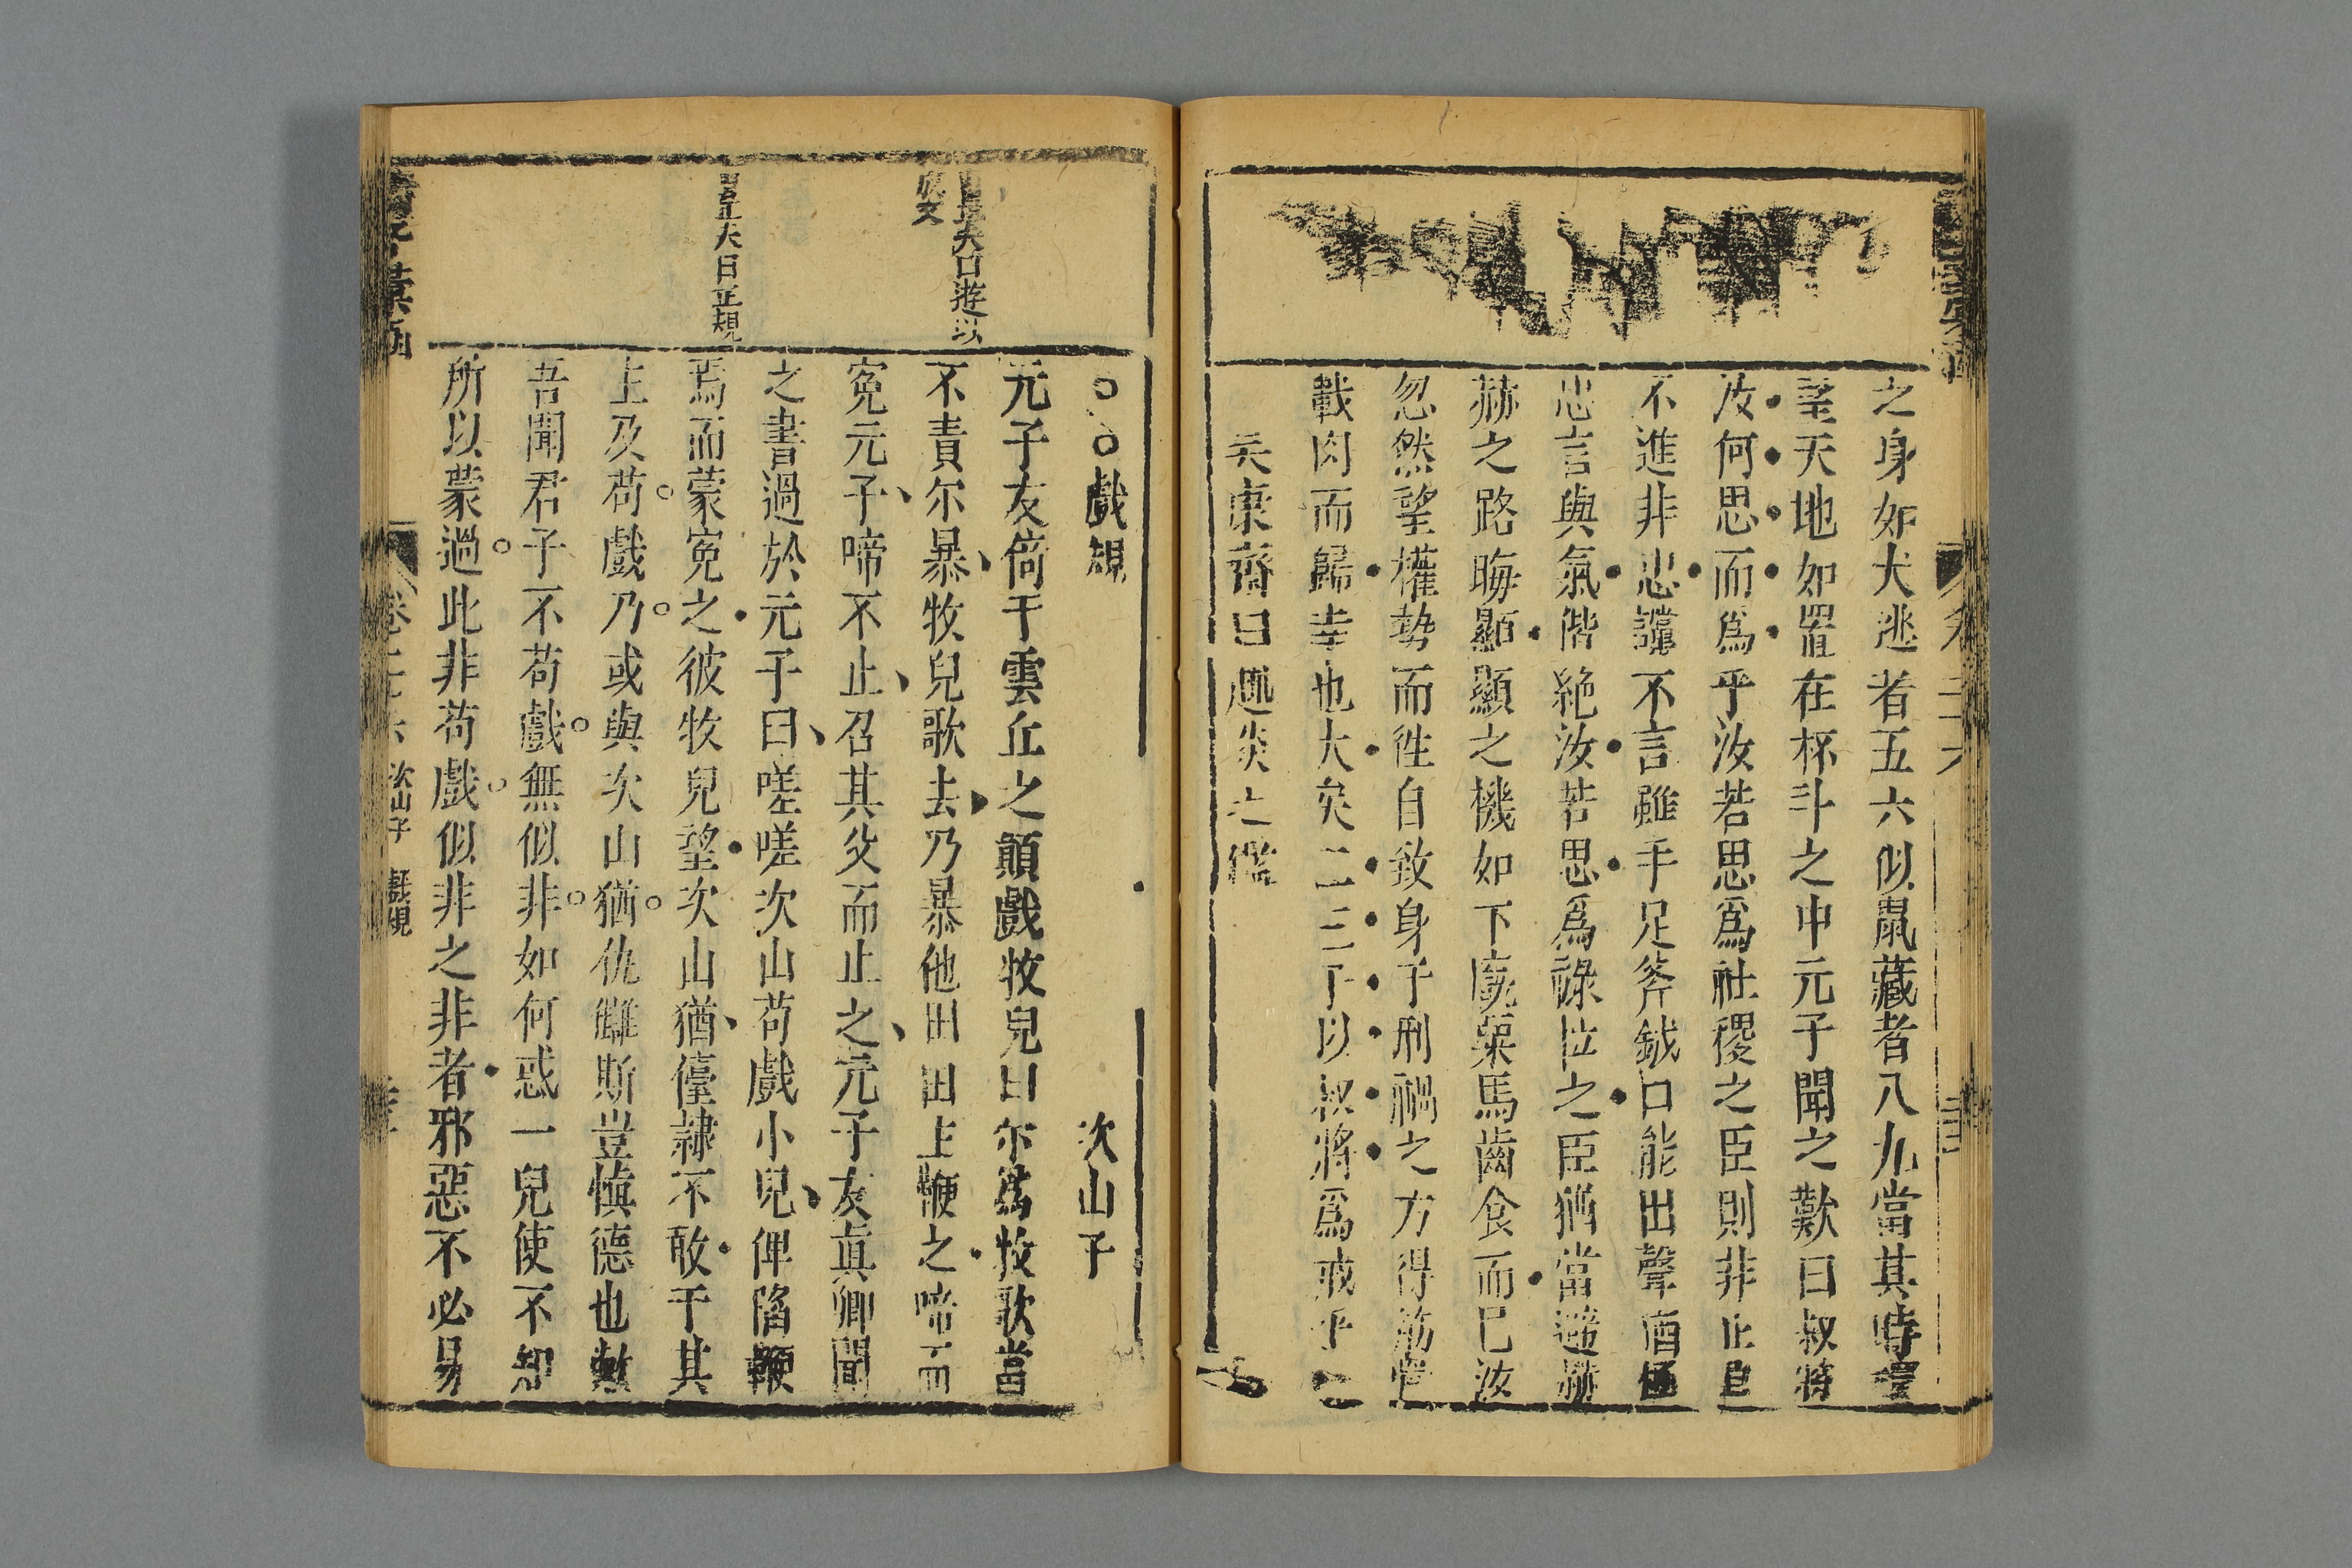 之身如犬逃者五六似鼠藏者八九當其時環
望天地如置在杯斗之中元子聞之歎曰叔將
汝何思而爲乎汝若思爲社稷之臣則非止
不進非忠讜不言雖手足斧鉞口能出聲猶極
忠言與氣偕絶汝若思爲祿位之臣猶當避赫
赫之路晦顯顯之機如下廐粟馬齒食而已汝
忽然望權勢而徃自致身于刑禍之方得筋
載肉而歸幸也大矣二三子以叔將爲戒乎
吳康齋曰趨炎之鑑
○○戲規
次山子
元子友倚于雲丘之顛戲牧兒曰尔爲牧歌當
不責尔暴牧兒歌去乃暴他田田主鞭之啼而
寃元子啼不止召其父而止之元子友眞卿聞
之書過於元子曰嗟嗟次山苟戲小兒俾陷鞭
焉而蒙寃之彼牧兒望次山猶儓隷不敢干其
上及苟戲乃或與次山猶仇讎斯豈愼德也歟
吾聞君子不苟戲無似非如何惑一兒使不知
所以蒙過此非苟戲似非之非者邪惡不必易
大日正規
卷二十六
次山子
戲規